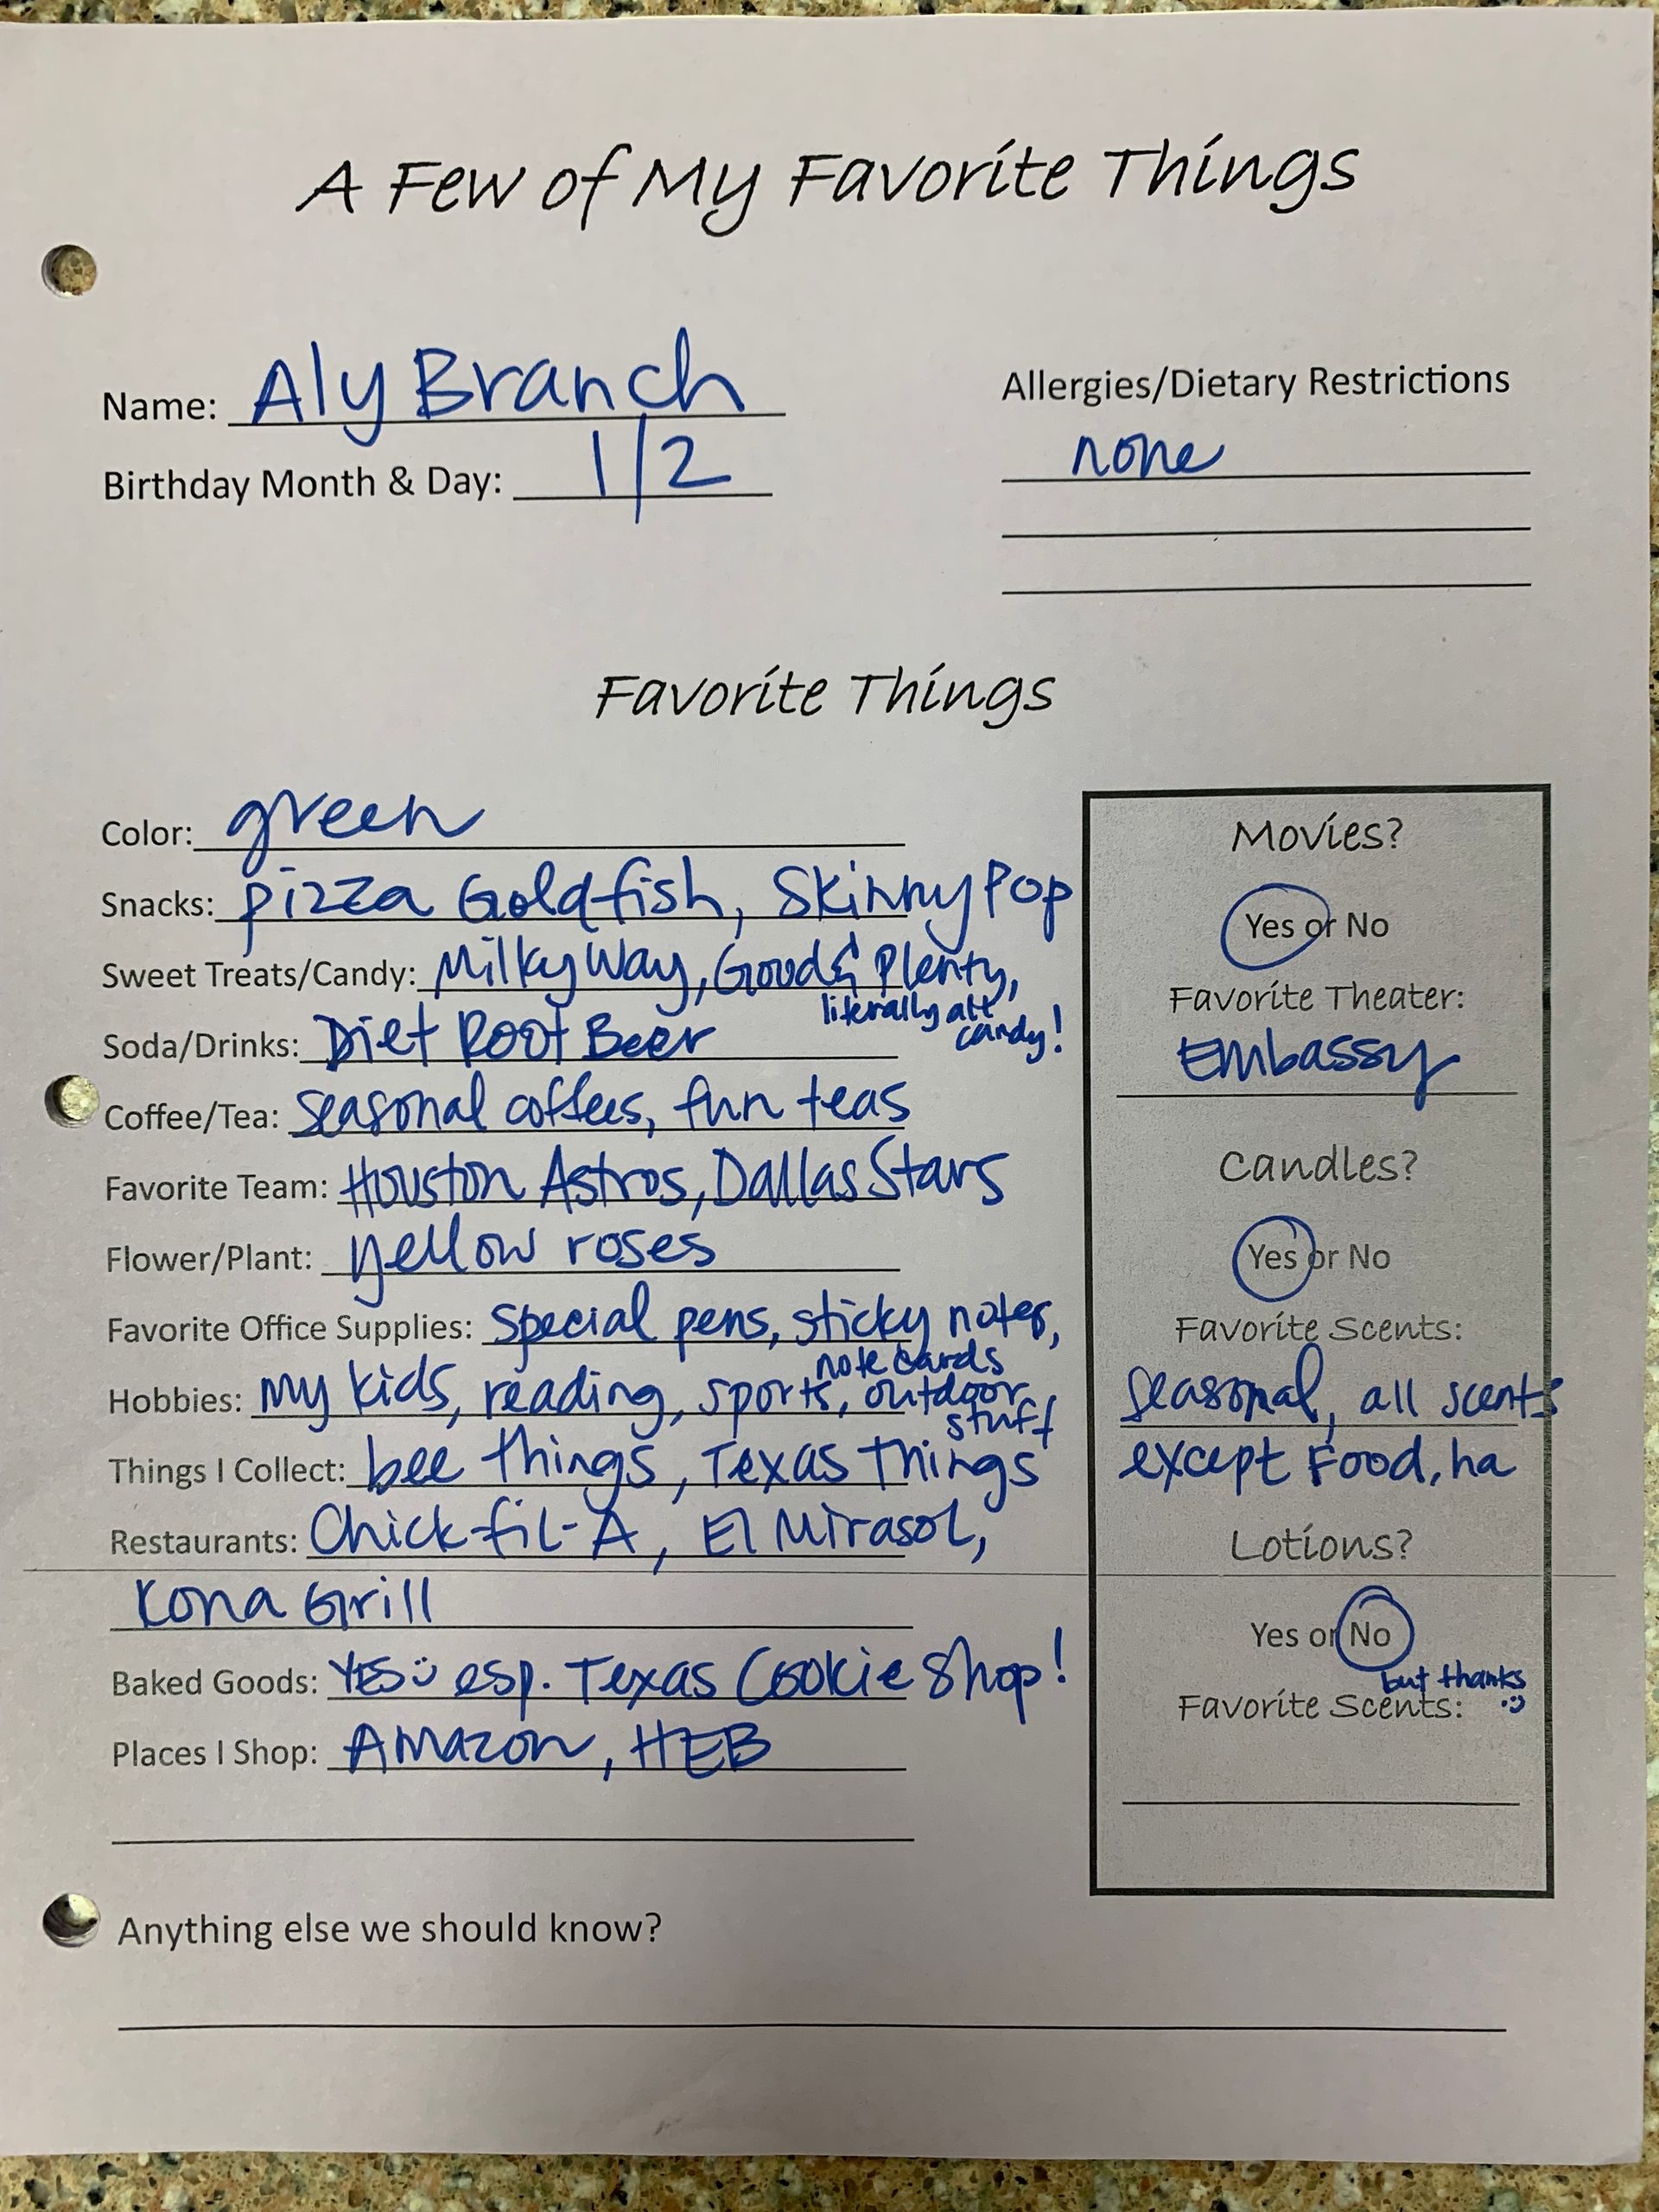 A Few of My Favorite Things
Name: Aly Branch
Birthday Month & Day: 1/2
Allergies/Dietary Restrictions
none
Favorite Things
Color: green
Snacks: pizza Goldfish, Skinny Pop
Sweet Treats/Candy: Milky Way, Good & Plenty,
literally all
candy!
Soda/Drinks: Diet Root Beer
Coffee/Tea: seasonal coffees, fun teas
Favorite Team: Houston Astros, Dallas Stars
Flower/Plant: yellow roses
Favorite Office Supplies: special pens, sticky notes,
note cards
Hobbies: my kids, reading, sports, outdoor
stuff
Things I Collect: bee things, Texas things
Restaurants: Chick-fil-A, El Mirasol,
Kona Grill
Baked Goods: YES :) esp. Texas Cookie Shop!
Places I Shop: Amazon, HEB
Movies?
Yes or No
Favorite Theater:
Embassy
Candles?
Yes or No
Favorite Scents:
seasonal, all scents
except Food, ha
Lotions?
Yes or No
but thanks :)
Favorite Scents:
Anything else we should know?